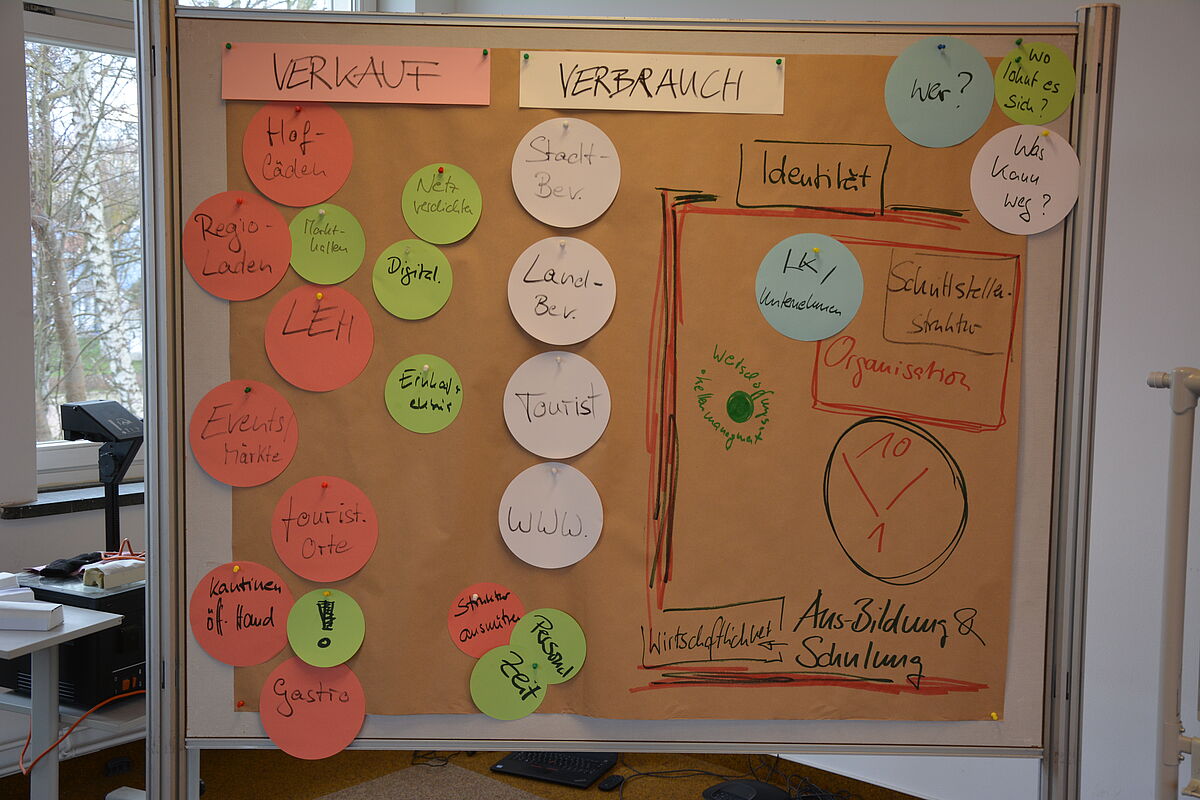 VERKAUF
Hof-
Läden
Regio-
Laden
Markt-
hallen
LEH
Netz
verdichten
Digital.
Events/
Märkte
Einkauf +
tourist.
Orte
Kantinen
öff. Hand
!
Gastro
VERBRAUCH
Stadt-
Bev.
Land-
Bev.
Tourist
WWW.
Struktur
Personal
Zeit
Wer?
Wo
lohnt es
sich?
Was
kann
weg?
Identität
LK /
Unternehmen
Schnittstellen-
struktur
Organisation
Wertschöpfungs-
kettenmanagment
10
1
Wirtschaftlichkeit
Aus-Bildung &
Schulung